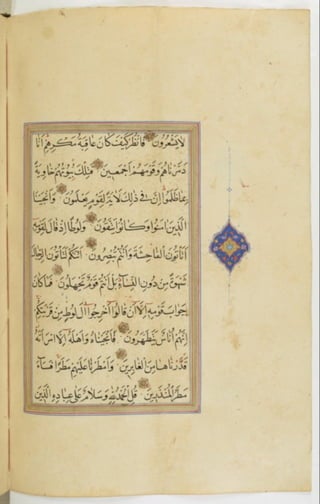 لا يشعرون فانظر كيف كان عاقبة مكرهم انا
دمرناهم وقومهم اجمعين فتلك بيوتهم خاوية
بما ظلموا ان في ذلك لاية لقوم يعلمون وانجينا
الذين امنوا وكانوا يتقون ولوطا اذ قال لقومه
اتاتون الفاحشة وانتم تبصرون ائنكم لتاتون الرجال
شهوة من دون النساء بل انتم قوم تجهلون فما كان
جواب قومه الا ان قالوا اخرجوا ال لوط من قريتكم
انهم اناس يتطهرون فانجيناه واهله الا امراته
قدرناها من الغابرين وامطرنا عليهم مطرا فساء
مطر المنذرين قل الحمد لله وسلام على عباده الذين